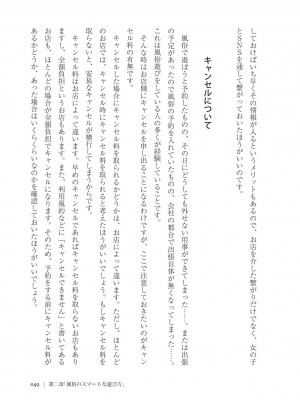 しておけばいち早くその情報が入るというメリットもあるので、お店を介した繋がりだけでなく、女の子
とＳＮＳを通して繋がっておいたほうがいいのです。
キャンセルについて
風俗で遊ぼうと予約したものの、その日にどうしても外せない用事ができてしまった……または出張
の予定があったので風俗の予約を入れていたものの、会社の都合で出張自体が無くなってしまった……
これは風俗遊びをしている人の多くが経験していることです。
そんな時はお店側にキャンセルを申し出ることになるわけですが、ここで注意しておきたいのがキャン
セル料の有無です。
キャンセルした場合にキャンセル料を取られるかどうかは、お店によって違います。ただし、ほとんど
のお店で、キャンセルしたらキャンセル料を取られると考えておいたほうがいいでしょう。もしキャンセル料を
取らないと、安易なキャンセルが横行してしまうからです。
キャンセル料はお店によって違います。早めのキャンセルであればキャンセル料を取らないお店もあり
ますし、全額負担というお店もあります。また、利用規約などに「キャンセルできません」と書いてある
お店も、ほとんどの場合が全額負担でキャンセルになります。そのため、予約をする前にキャンセル料が
あるかどうか、あった場合はいくらくらいなのかを確認しておいたほうがいいでしょう。
049 第二章「風俗のスマートな遊び方」